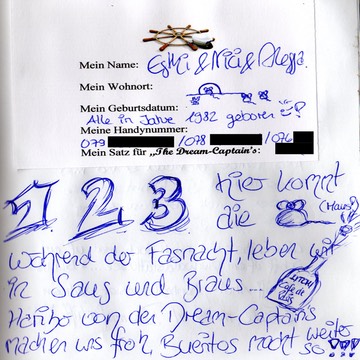 Mein Name: Esthi & Nici & Alessa.
Mein Wohnort:
Mein Geburtsdatum:
Alle im Jahre 1982 geboren!
Meine Handynummer:
079 /078 /076
Mein Satz für „The Dream-Captain's:
1 2 3 Hier kommt
die (Maus)
während der Fasnacht, leben wir
in Saus und Braus...
Haribo von den Dream-Captains
machen uns froh, Buéntos macht weiter
so !!!